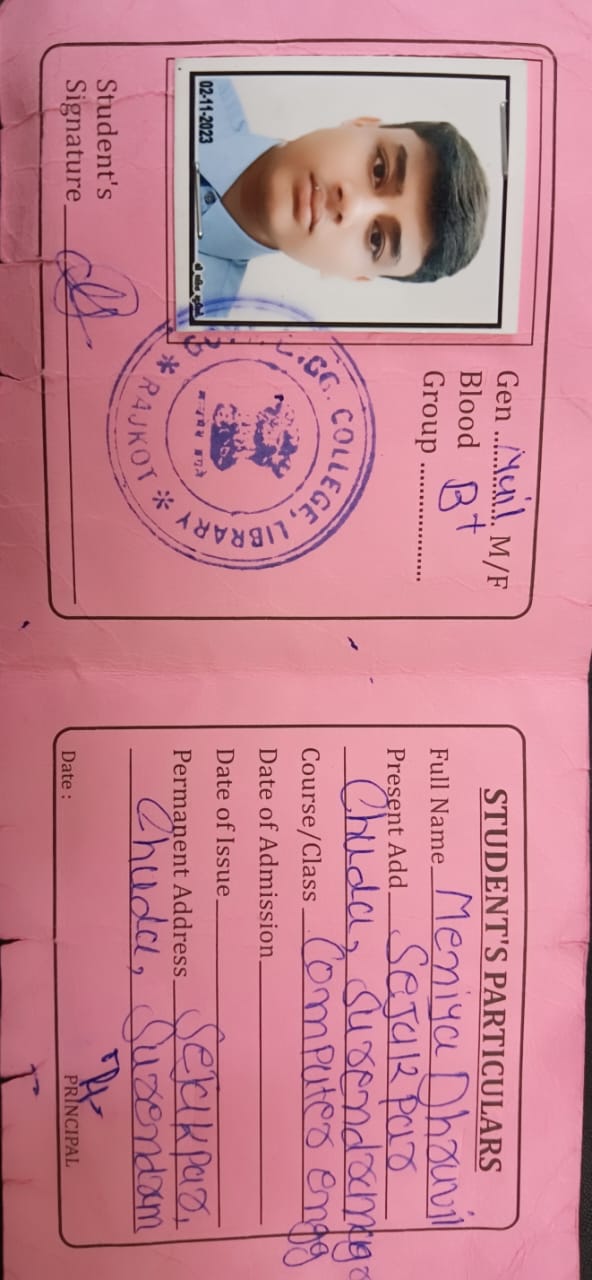 02-11-2023
Gen Mail M/F
Blood B+
Group
Student's
Signature
GG. COLLEGE, LIBRARY
* RAJKOT *
STUDENT'S PARTICULARS
Full Name Meniya Dhruvil
Present Add Sejakpar
Chuda, Surendranagar
Course/Class Computer engg
Date of Admission
Date of Issue
Permanent Address Sejakpar,
Chuda, Surendran
Date :
PRINCIPAL